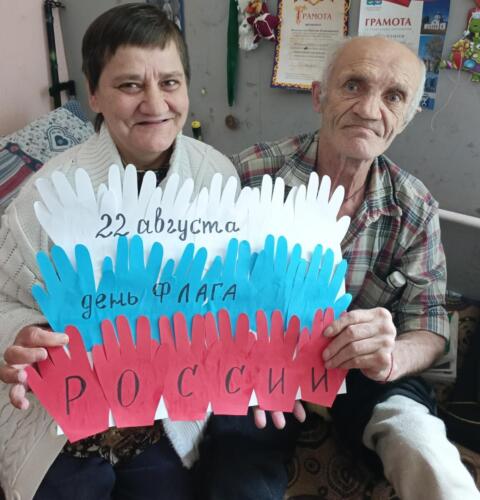 ГРАМОТА
ГРАМОТА
22 августа
день ФЛАГА
РОССИИ